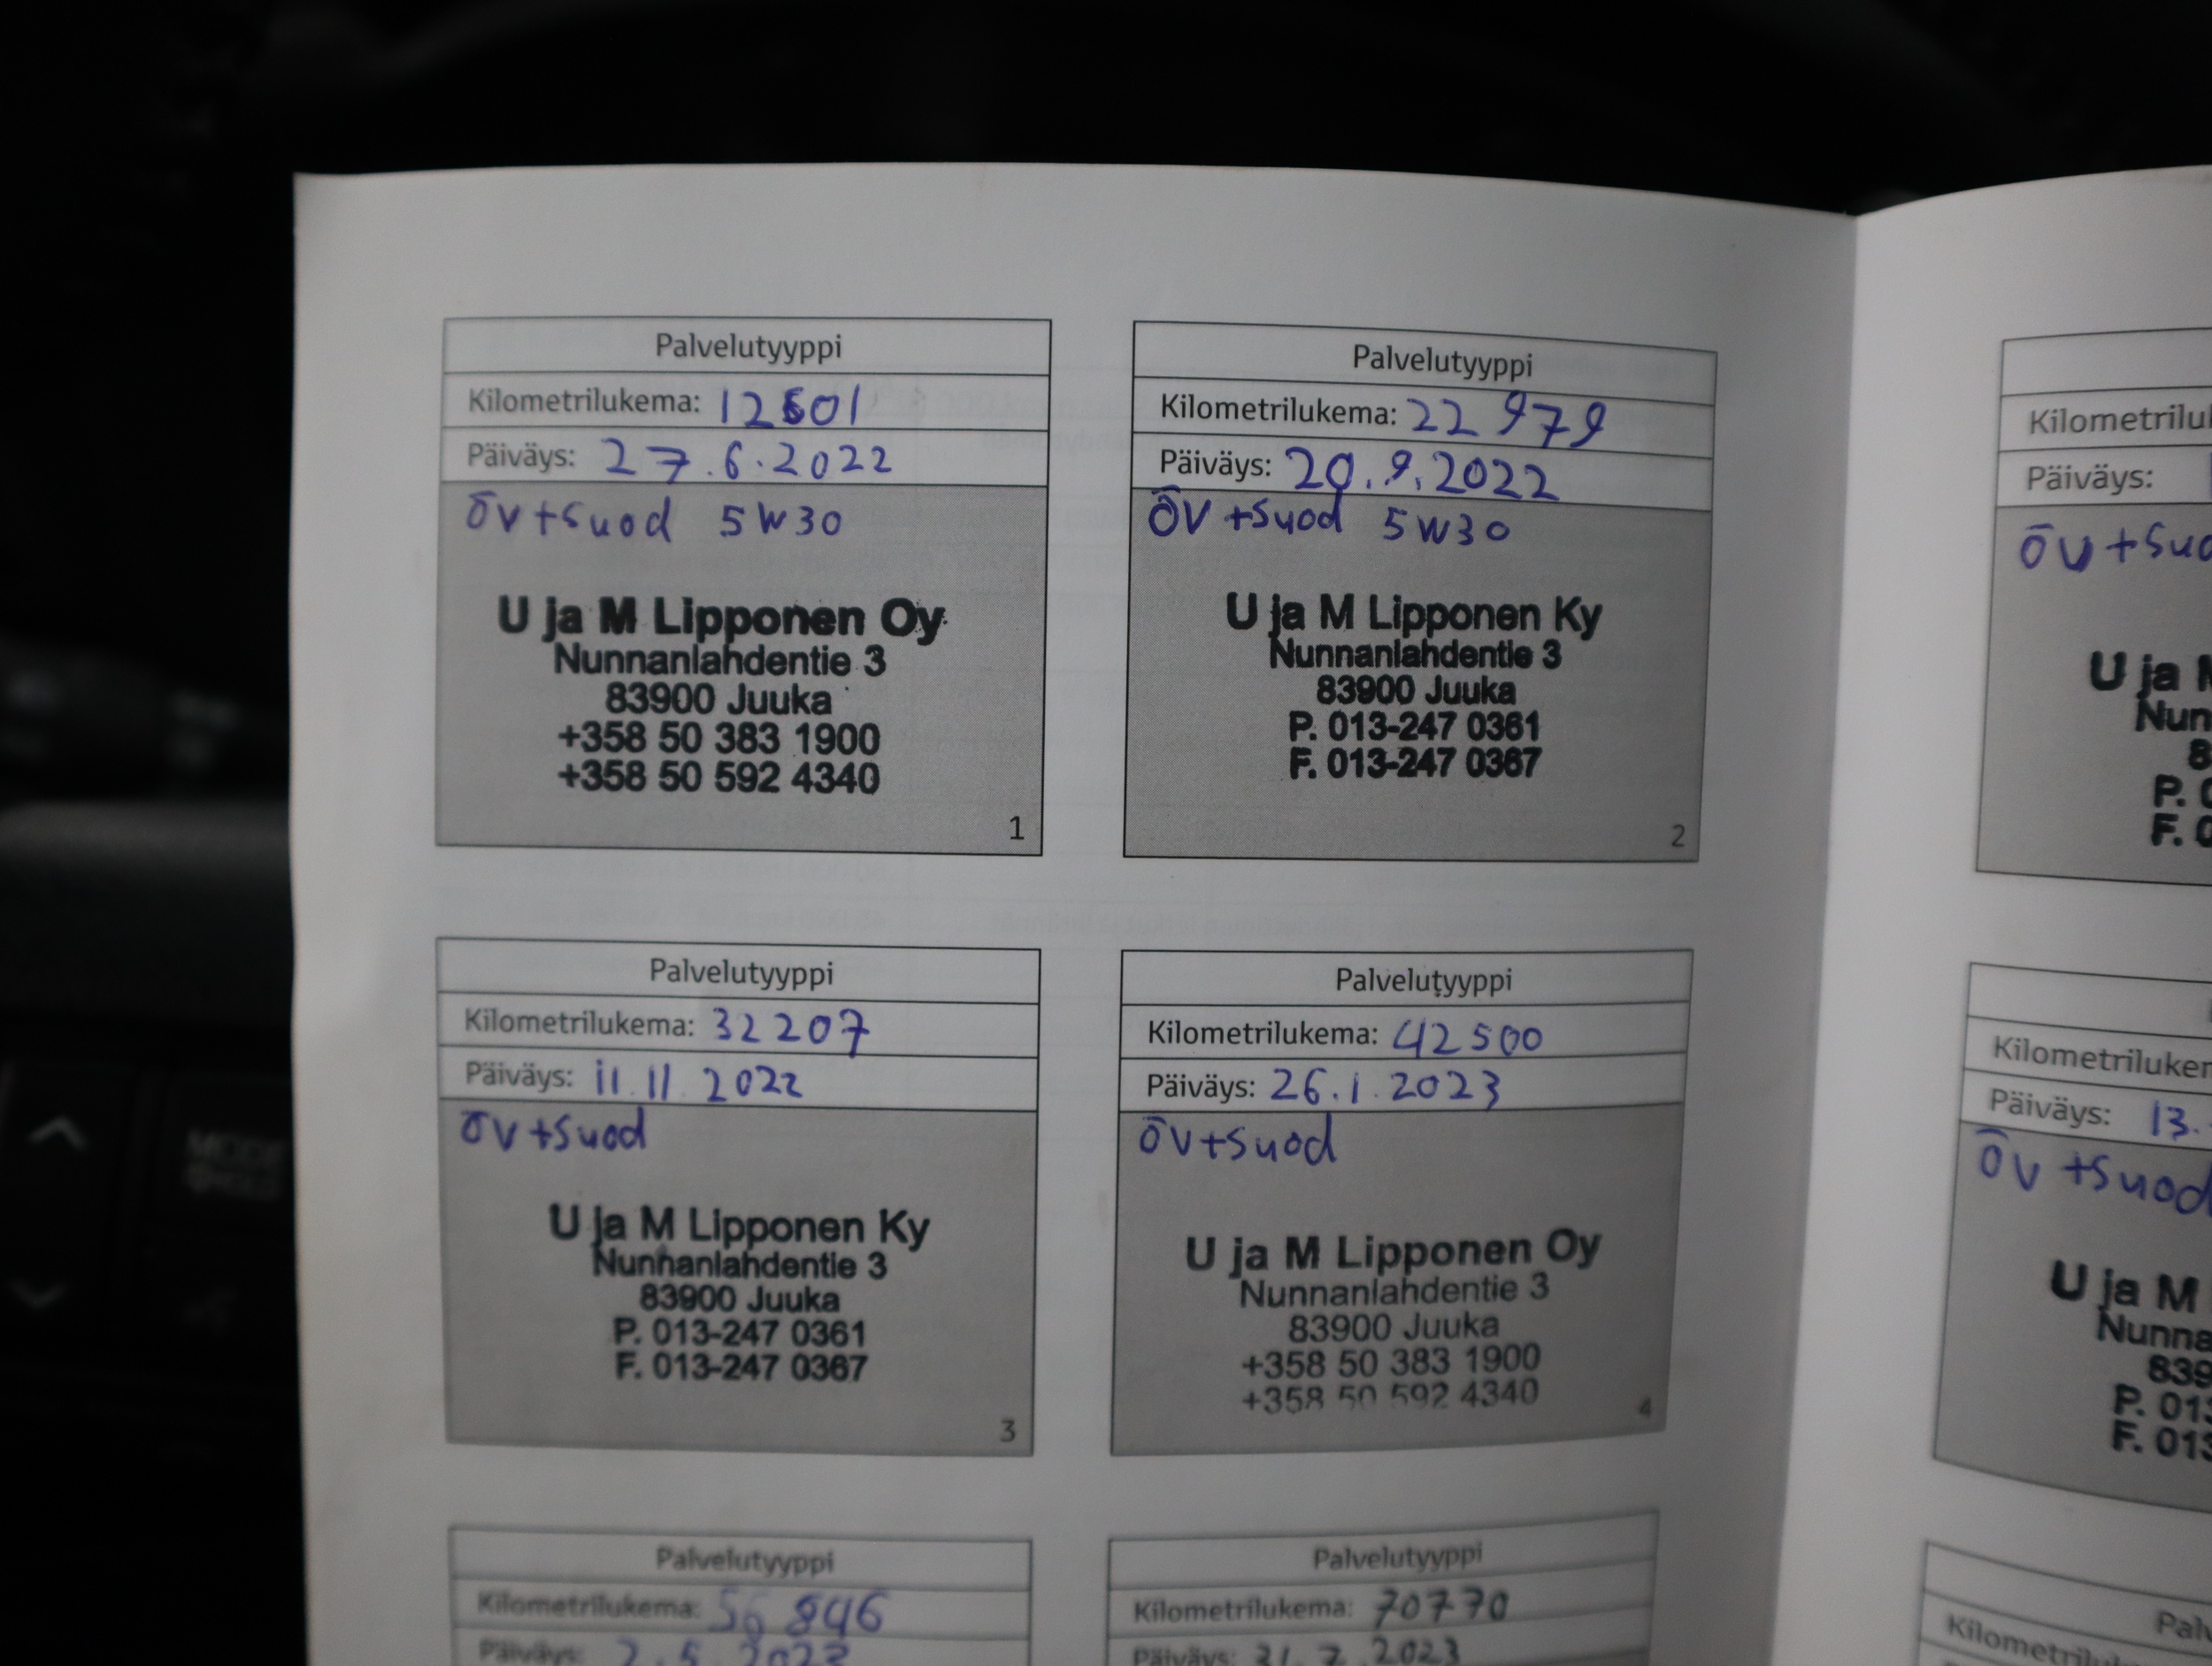 Palvelutyyppi
Kilometrilukema: 12601
Päiväys: 27.6.2022
ÖV+Suod 5W30
U ja M Lipponen Oy
Nunnanlahdentie 3
83900 Juuka
+358 50 383 1900
+358 50 592 4340
1
Palvelutyyppi
Kilometrilukema: 22979
Päiväys: 20.9.2022
ÖV+Suod 5W30
U ja M Lipponen Ky
Nunnanlahdentie 3
83900 Juuka
P. 013-247 0361
F. 013-247 0367
2
Palvelutyyppi
Kilometrilukema: 32207
Päiväys: 11.11.2022
ÖV+Suod
U ja M Lipponen Ky
Nunnanlahdentie 3
83900 Juuka
P. 013-247 0361
F. 013-247 0367
3
Palvelutyyppi
Kilometrilukema: 42500
Päiväys: 26.1.2023
ÖV+Suod
U ja M Lipponen Oy
Nunnanlahdentie 3
83900 Juuka
+358 50 383 1900
+358 50 592 4340
4
Palvelutyyppi
Kilometrilukema: 56846
Päiväys: 2.5.2023
Palvelutyyppi
Kilometrilukema: 70770
Päiväys: 31.7.2023
Päiväys:
ÖV+Suo
U ja M
Päiväys: 13.
ÖV+Suod
U ja M
P. 013
F. 013
MODE
HOLD